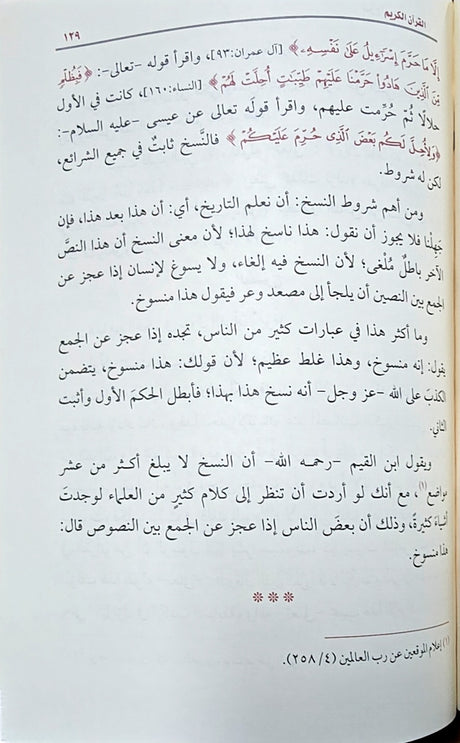 القرآن الكريم
١٢٩
إِلَّا مَا حَرَّمَ إِسْرَٰٓءِيلُ عَلَىٰ نَفْسِهِۦ﴾ [آل عمران:٩٣]، واقرأ قوله –تعالى–: ﴿فَبِظُلْمٍ
مِّنَ ٱلَّذِينَ هَادُوا۟ حَرَّمْنَا عَلَيْهِمْ طَيِّبَٰتٍ أُحِلَّتْ لَهُمْ﴾ [النساء:١٦٠]، كانت في الأول
حلالًا ثُمَّ حُرِّمت عليهم، واقرأ قولَه تعالى عن عيسى –عليه السلام–:
﴿وَلِأُحِلَّ لَكُم بَعْضَ ٱلَّذِى حُرِّمَ عَلَيْكُمْ﴾ فالنَّسخ ثابتٌ في جميع الشرائع،
لكن له شروط.
ومن أهم شروط النسخ: أن نعلم التاريخ، أي: أن هذا بعد هذا، فإن
جَهِلْنا فلا يجوز أن نقول: هذا ناسخ لهذا؛ لأن معنى النسخ أن هذا النصَّ
الآخر باطلٌ مُلْغى؛ لأن النسخ فيه إلغاء، ولا يسوغ لإنسان إذا عجز عن
الجمع بين النصين أن يلجأ إلى مصعد وعر فيقول هذا منسوخ.
وما أكثر هذا في عبارات كثير من الناس، تجده إذا عجز عن الجمع
يقول: إنه منسوخ، وهذا غلط عظيم؛ لأن قولك: هذا منسوخ، يتضمن
الكذبَ على الله –عز وجل– أنه نسخ هذا بهذا؛ فأبطل الحكمَ الأول وأثبت
الثاني.
ويقول ابن القيم –رحمه الله– أن النسخ لا يبلغ أكثر من عشر
مواضع(١)، مع أنك لو أردت أن تنظر إلى كلام كثيرٍ من العلماء لوجدتَ
أشياءَ كثيرةً، وذلك أن بعضَ الناس إذا عجز عن الجمع بين النصوص قال:
هذا منسوخ.
***
(١) إعلام الموقعين عن رب العالمين (٤/ ٢٥٨).